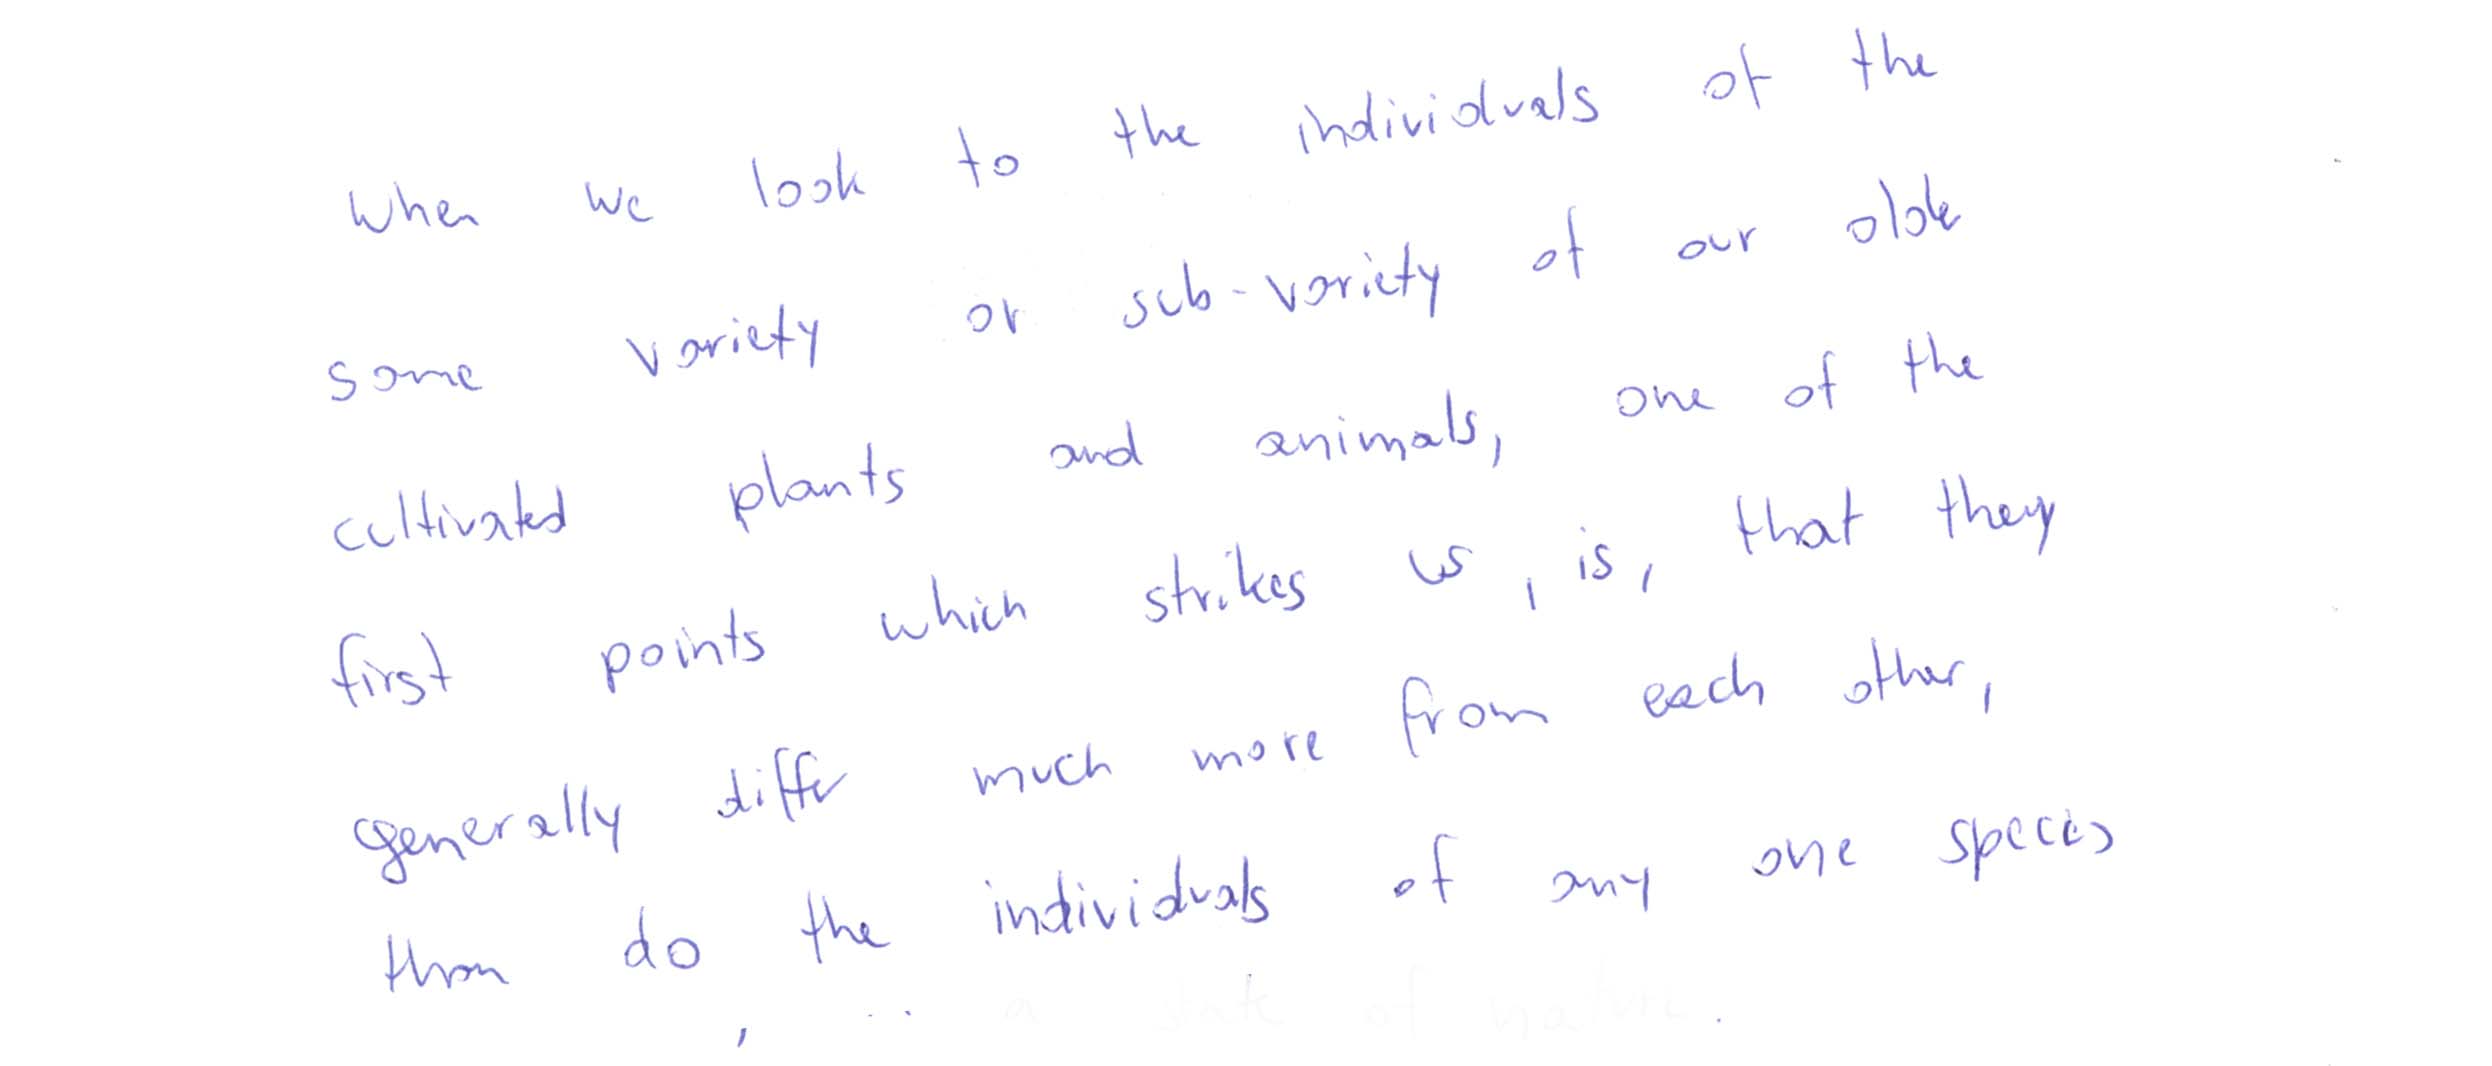 When we look to the individuals of the
some variety or sub-variety of our older
cultivated plants and animals, one of the
first points which strikes us, is, that they
generally differ much more from each other,
than do the individuals of any one species
a state of nature.